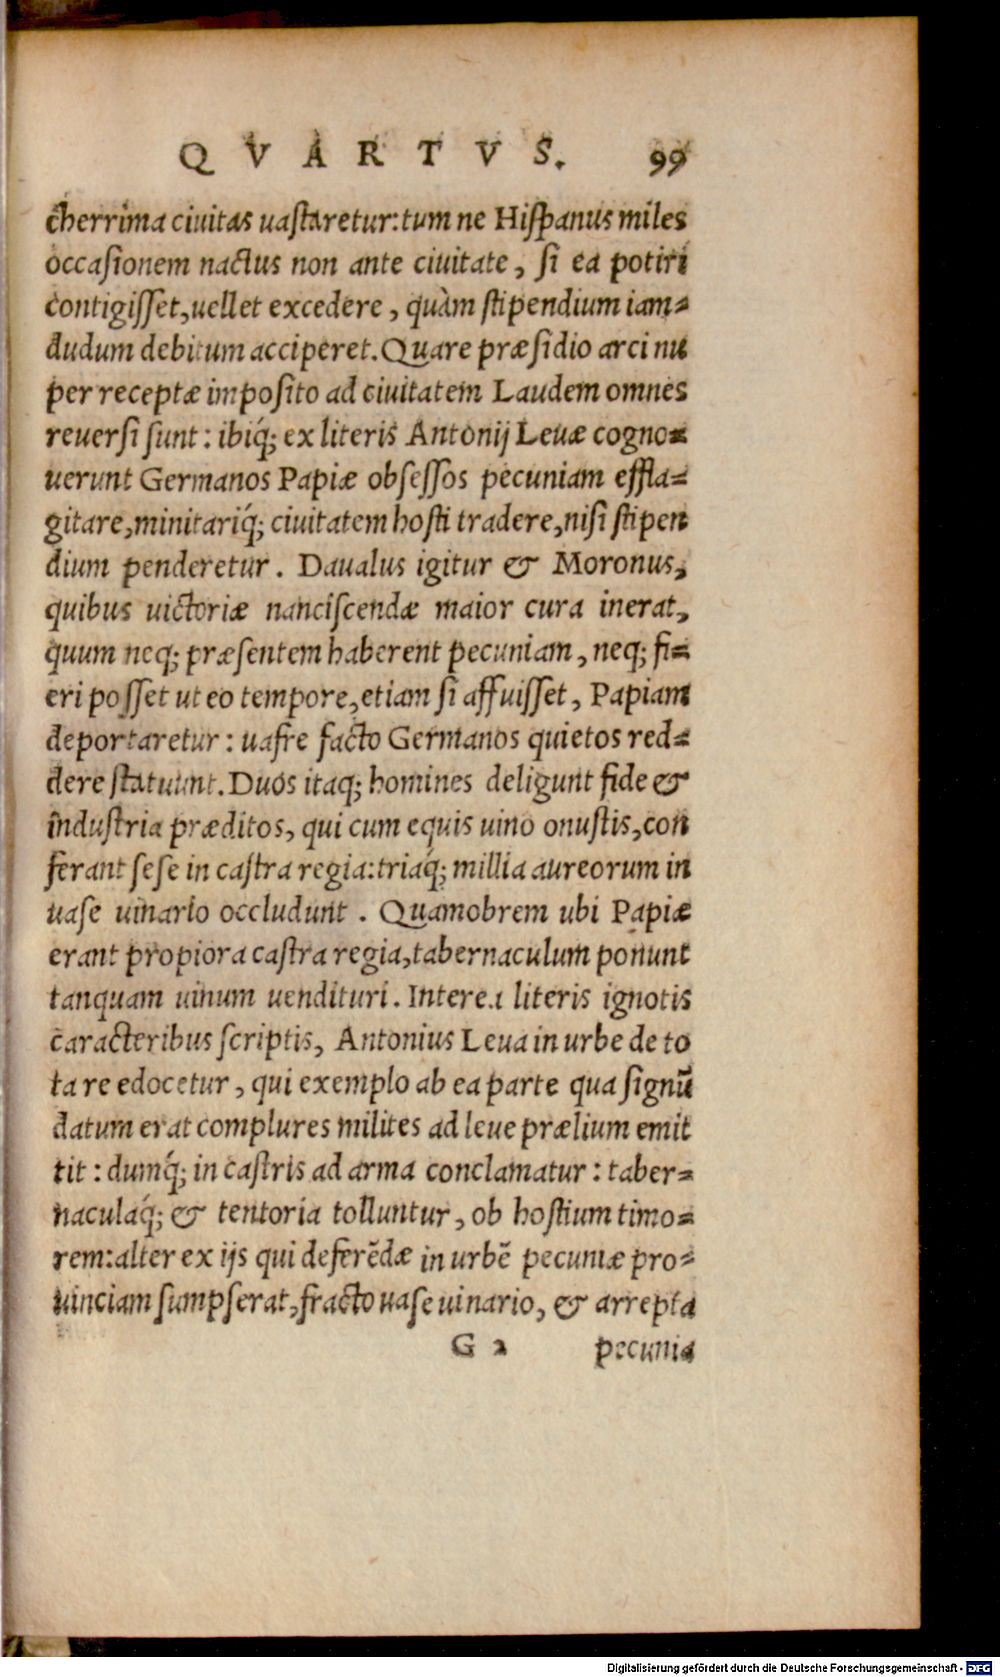 QVARTVS. 99
cherrima ciuitas uastaretur: tum ne Hispanus miles
occasionem nactus non ante ciuitate, si ea potiri
contigisset, uellet excedere, quàm stipendium iam=
dudum debitum acciperet. Quare præsidio arci nu
per receptæ imposito ad ciuitatem Laudem omnes
reuersi sunt: ibiq́; ex literis Antonij Leuæ cogno=
uerunt Germanos Papiæ obsessos pecuniam effla=
gitare, minitariq́; ciuitatem hosti tradere, nisi stipen
dium penderetur. Daualus igitur & Moronus,
quibus uictoriæ nanciscendæ maior cura inerat,
quum neq; præsentem haberent pecuniam, neq; fi=
eri posset ut eo tempore, etiam si affuisset, Papiam
deportaretur: uafre facto Germanos quietos red=
dere statuunt. Duos itaq; homines deligunt fide &
industria præditos, qui cum equis uino onustis, con
ferant sese in castra regia: triaq́; millia aureorum in
uase uinario occludunt. Quamobrem ubi Papiæ
erant propiora castra regia, tabernaculum ponunt
tanquam uinum uendituri. Interea literis ignotis
caracteribus scriptis, Antonius Leua in urbe de to
ta re edocetur, qui exemplo ab ea parte qua signū
datum erat complures milites ad leue prælium emit
tit: dumq́; in castris ad arma conclamatur: taber=
naculaq́; & tentoria tolluntur, ob hostium timo=
rem: alter ex ijs qui deferēdæ in urbē pecuniæ pro=
uinciam sumpserat, fracto uase uinario, & arrepta
G 2 pecunia
Digitalisierung gefördert durch die Deutsche Forschungsgemeinschaft - DFG